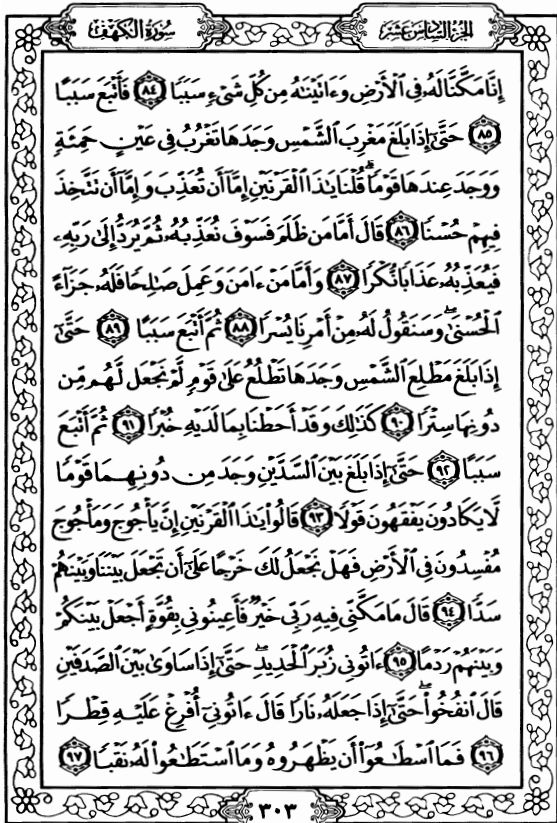 سورة الكهف
الجزء السادس عشر
إِنَّا مَكَّنَّا لَهُۥ فِي ٱلْأَرْضِ وَءَاتَيْنَٰهُ مِن كُلِّ شَىْءٍ سَبَبًا ٨٤ فَأَتْبَعَ سَبَبًا
٨٥ حَتَّىٰٓ إِذَا بَلَغَ مَغْرِبَ ٱلشَّمْسِ وَجَدَهَا تَغْرُبُ فِى عَيْنٍ حَمِئَةٍ
وَوَجَدَ عِندَهَا قَوْمًا ۗ قُلْنَا يَٰذَا ٱلْقَرْنَيْنِ إِمَّآ أَن تُعَذِّبَ وَإِمَّآ أَن تَتَّخِذَ
فِيهِمْ حُسْنًا ٨٦ قَالَ أَمَّا مَن ظَلَمَ فَسَوْفَ نُعَذِّبُهُۥ ثُمَّ يُرَدُّ إِلَىٰ رَبِّهِۦ
فَيُعَذِّبُهُۥ عَذَابًا نُّكْرًا ٨٧ وَأَمَّا مَنْ ءَامَنَ وَعَمِلَ صَٰلِحًا فَلَهُۥ جَزَآءً
ٱلْحُسْنَىٰ ۖ وَسَنَقُولُ لَهُۥ مِنْ أَمْرِنَا يُسْرًا ٨٨ ثُمَّ أَتْبَعَ سَبَبًا ٨٩ حَتَّىٰٓ
إِذَا بَلَغَ مَطْلِعَ ٱلشَّمْسِ وَجَدَهَا تَطْلُعُ عَلَىٰ قَوْمٍ لَّمْ نَجْعَل لَّهُم مِّن
دُونِهَا سِتْرًا ٩٠ كَذَٰلِكَ وَقَدْ أَحَطْنَا بِمَا لَدَيْهِ خُبْرًا ٩١ ثُمَّ أَتْبَعَ
سَبَبًا ٩٢ حَتَّىٰٓ إِذَا بَلَغَ بَيْنَ ٱلسَّدَّيْنِ وَجَدَ مِن دُونِهِمَا قَوْمًا
لَّا يَكَادُونَ يَفْقَهُونَ قَوْلًا ٩٣ قَالُوا۟ يَٰذَا ٱلْقَرْنَيْنِ إِنَّ يَأْجُوجَ وَمَأْجُوجَ
مُفْسِدُونَ فِى ٱلْأَرْضِ فَهَلْ نَجْعَلُ لَكَ خَرْجًا عَلَىٰٓ أَن تَجْعَلَ بَيْنَنَا وَبَيْنَهُمْ
سَدًّا ٩٤ قَالَ مَا مَكَّنِّى فِيهِ رَبِّى خَيْرٌ فَأَعِينُونِى بِقُوَّةٍ أَجْعَلْ بَيْنَكُمْ
وَبَيْنَهُمْ رَدْمًا ٩٥ ءَاتُونِى زُبَرَ ٱلْحَدِيدِ ۖ حَتَّىٰٓ إِذَا سَاوَىٰ بَيْنَ ٱلصَّدَفَيْنِ
قَالَ ٱنفُخُوا۟ ۖ حَتَّىٰٓ إِذَا جَعَلَهُۥ نَارًا قَالَ ءَاتُونِىٓ أُفْرِغْ عَلَيْهِ قِطْرًا
٩٦ فَمَا ٱسْطَٰعُوٓا۟ أَن يَظْهَرُوهُ وَمَا ٱسْتَطَٰعُوا۟ لَهُۥ نَقْبًا ٩٧
٣٠٣